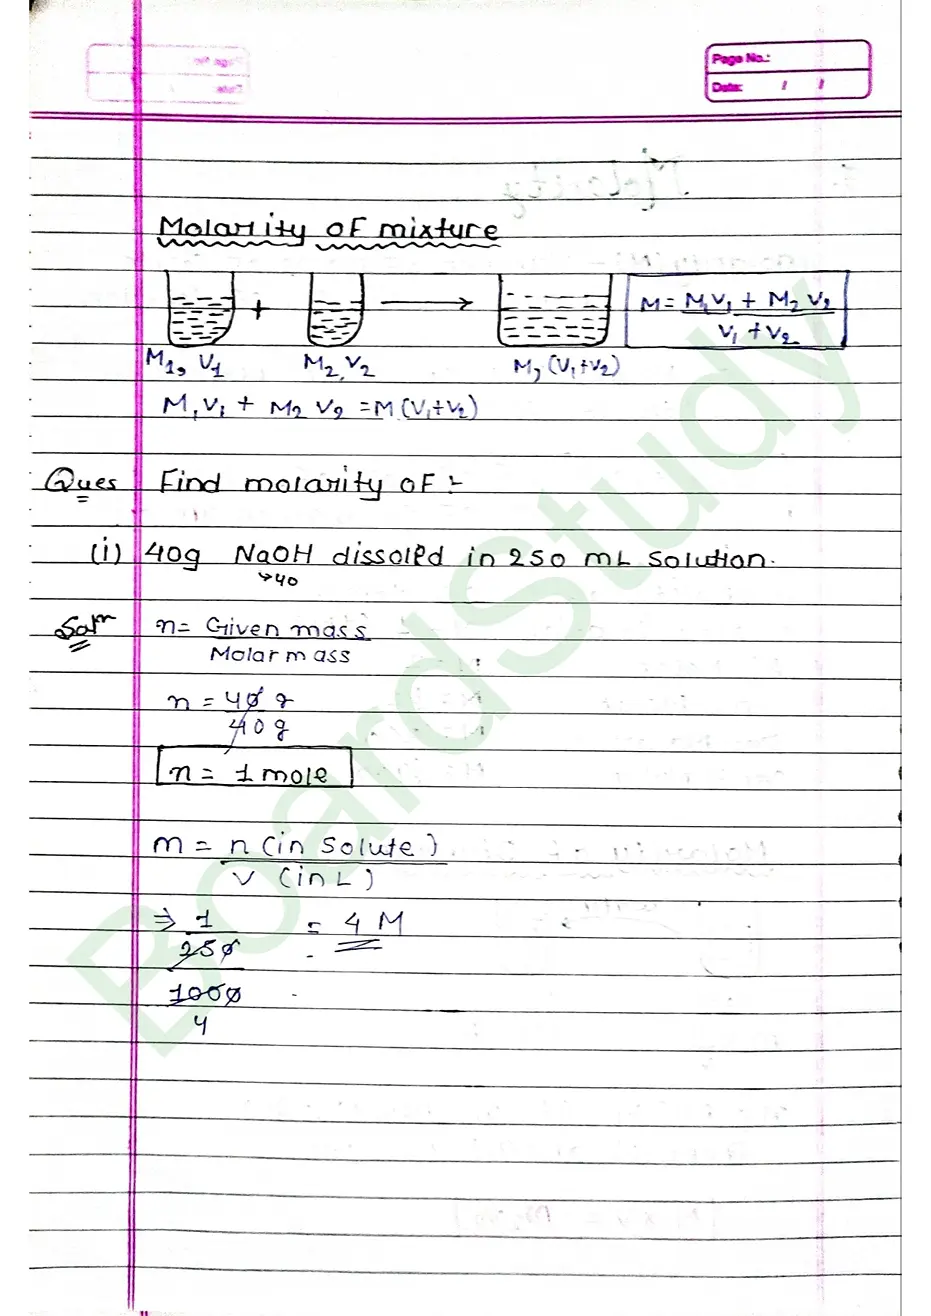 Page No.:
Date: / /
Molarity of mixture
M₁, V₁ + M₂, V₂ → M, (V₁+V₂)
M = M₁V₁ + M₂V₂ / V₁ + V₂
M₁V₁ + M₂V₂ = M(V₁+V₂)
Ques Find molarity of :-
(i) 40g NaOH dissolved in 250 mL solution.
→40
Solⁿ n = Given mass
Molar mass
n = 40 g
40 g
n = 1 mole
m = n (in solute)
V (in L)
⇒ 1 = 4 M
250
1000
4
BoardStudy